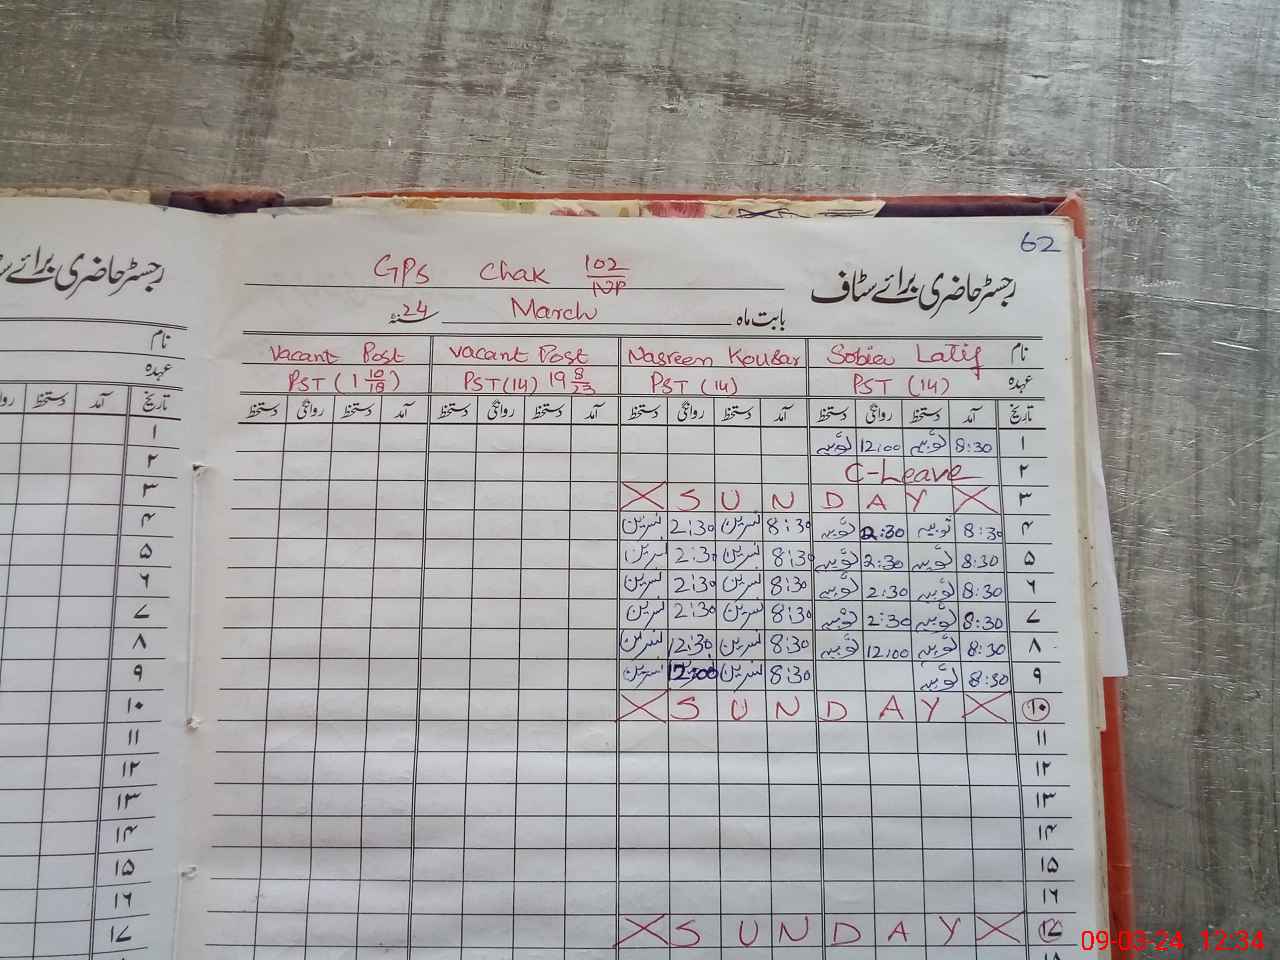 62
رجسٹر حاضری برائے سٹاف
GPS Chak 102/NP
بابت ماہ March سنہ 24
نام Sobia Latif Nasreen Kousar Vacant Post Vacant Post
عہدہ PST (14) PST (14) PST(14) 19 8/23 PST (1 10/18)
تاریخ آمد دستخط روانگی دستخط آمد دستخط روانگی دستخط آمد دستخط روانگی دستخط آمد دستخط روانگی دستخط
۱ 8:30 ثوبیہ 12:00 ثوبیہ
۲ C-Leave
۳ X S U N D A Y X
۴ 8:30 ثوبیہ 2:30 ثوبیہ 8:30 نسرین 2:30 نسرین
۵ 8:30 ثوبیہ 2:30 ثوبیہ 8:30 نسرین 2:30 نسرین
۶ 8:30 ثوبیہ 2:30 ثوبیہ 8:30 نسرین 2:30 نسرین
۷ 8:30 ثوبیہ 2:30 ثوبیہ 8:30 نسرین 2:30 نسرین
۸ 8:30 ثوبیہ 12:00 ثوبیہ 8:30 نسرین 12:30 نسرین
۹ 8:30 ثوبیہ 8:30 نسرین 12:00 نسرین
۱۰ X S U N D A Y X
۱۱
۱۲
۱۳
۱۴
۱۵
۱۶
۱۷ X S U N D A Y X
۱۸
رجسٹر حاضری برائے
نام
عہدہ
تاریخ آمد دستخط
۱
۲
۳
۴
۵
۶
۷
۸
۹
۱۰
۱۱
۱۲
۱۳
۱۴
۱۵
۱۶
۱۷
09-03-24 12:34